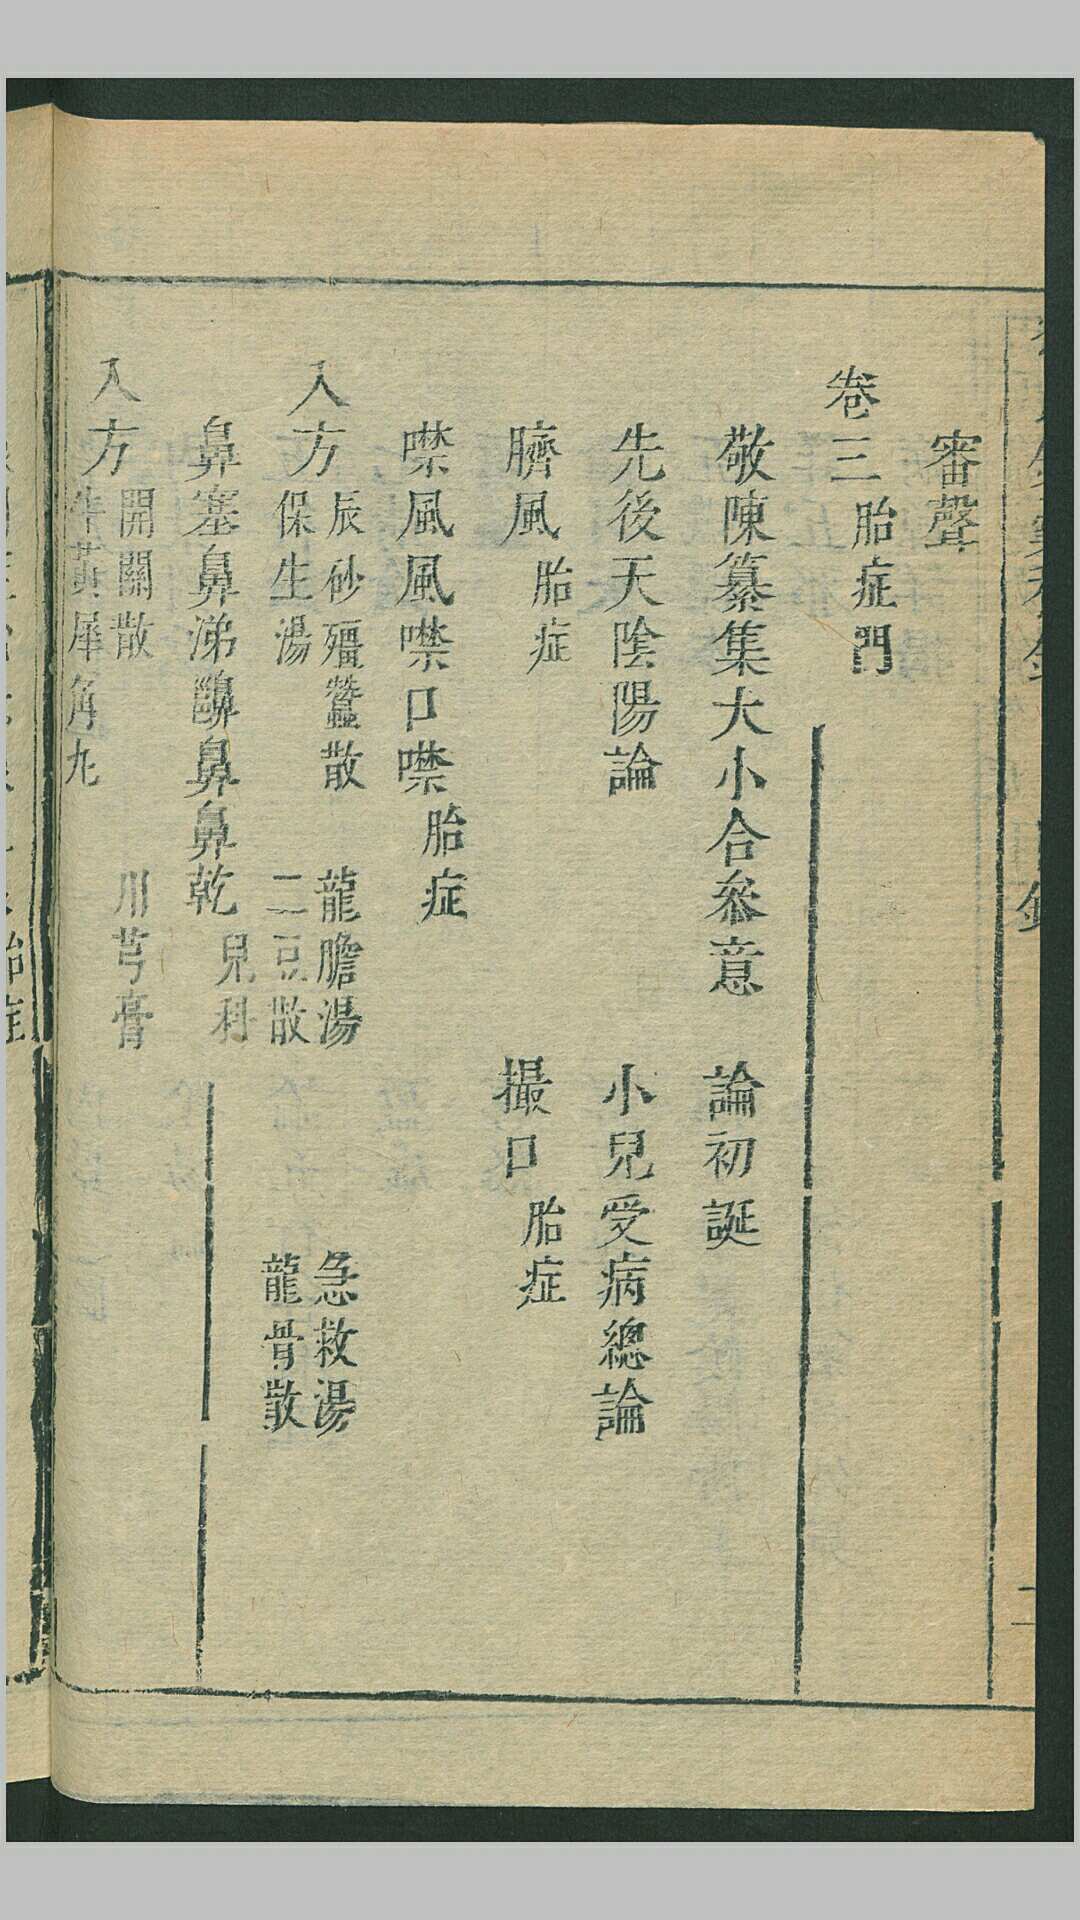 審聲
卷三 胎症門
敬陳纂集大小合參意 論初誕
先後天陰陽論 小兒受病總論
臍風 胎症 撮口 胎症
噤風風噤口噤 胎症
入方 辰砂殭蠶散 龍膽湯 急救湯
保生湯 二豆散 龍骨散
鼻塞鼻涕齆鼻鼻乾 兒科
入方 開關散 川芎膏
牛黃犀角九